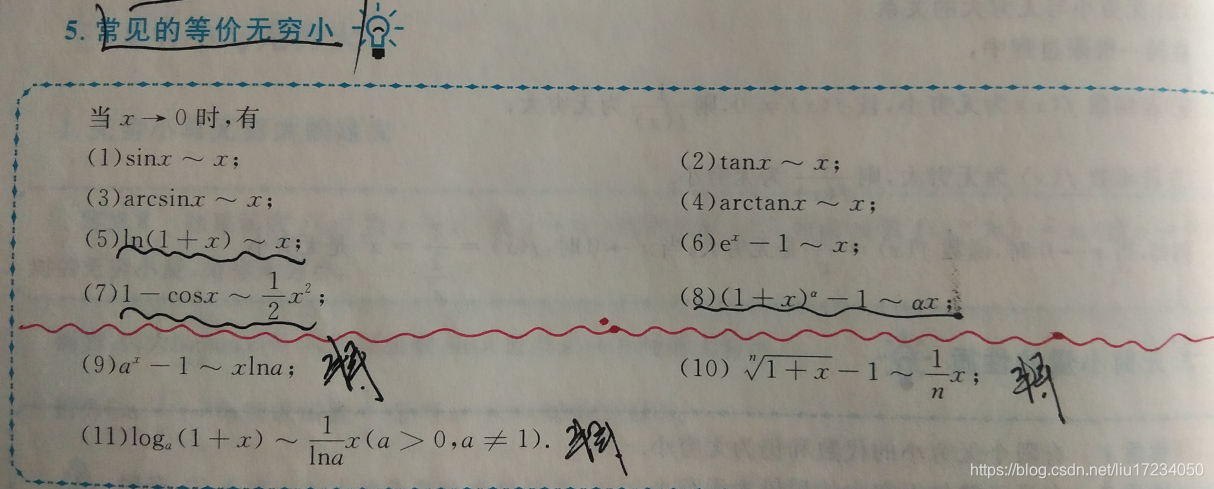 5. 常见的等价无穷小
当 x → 0 时,有
(1)sinx ~ x;
(2)tanx ~ x;
(3)arcsinx ~ x;
(4)arctanx ~ x;
(5)ln(1 + x) ~ x;
(6)eˣ − 1 ~ x;
(7)1 − cosx ~ 1/2 x²;
(8)(1 + x)ᵅ − 1 ~ αx;
(9)aˣ − 1 ~ xlna;
(10) ⁿ√(1 + x) − 1 ~ 1/n x;
(11)logₐ(1 + x) ~ 1/lna x(a > 0,a ≠ 1).
https://blog.csdn.net/liu17234050